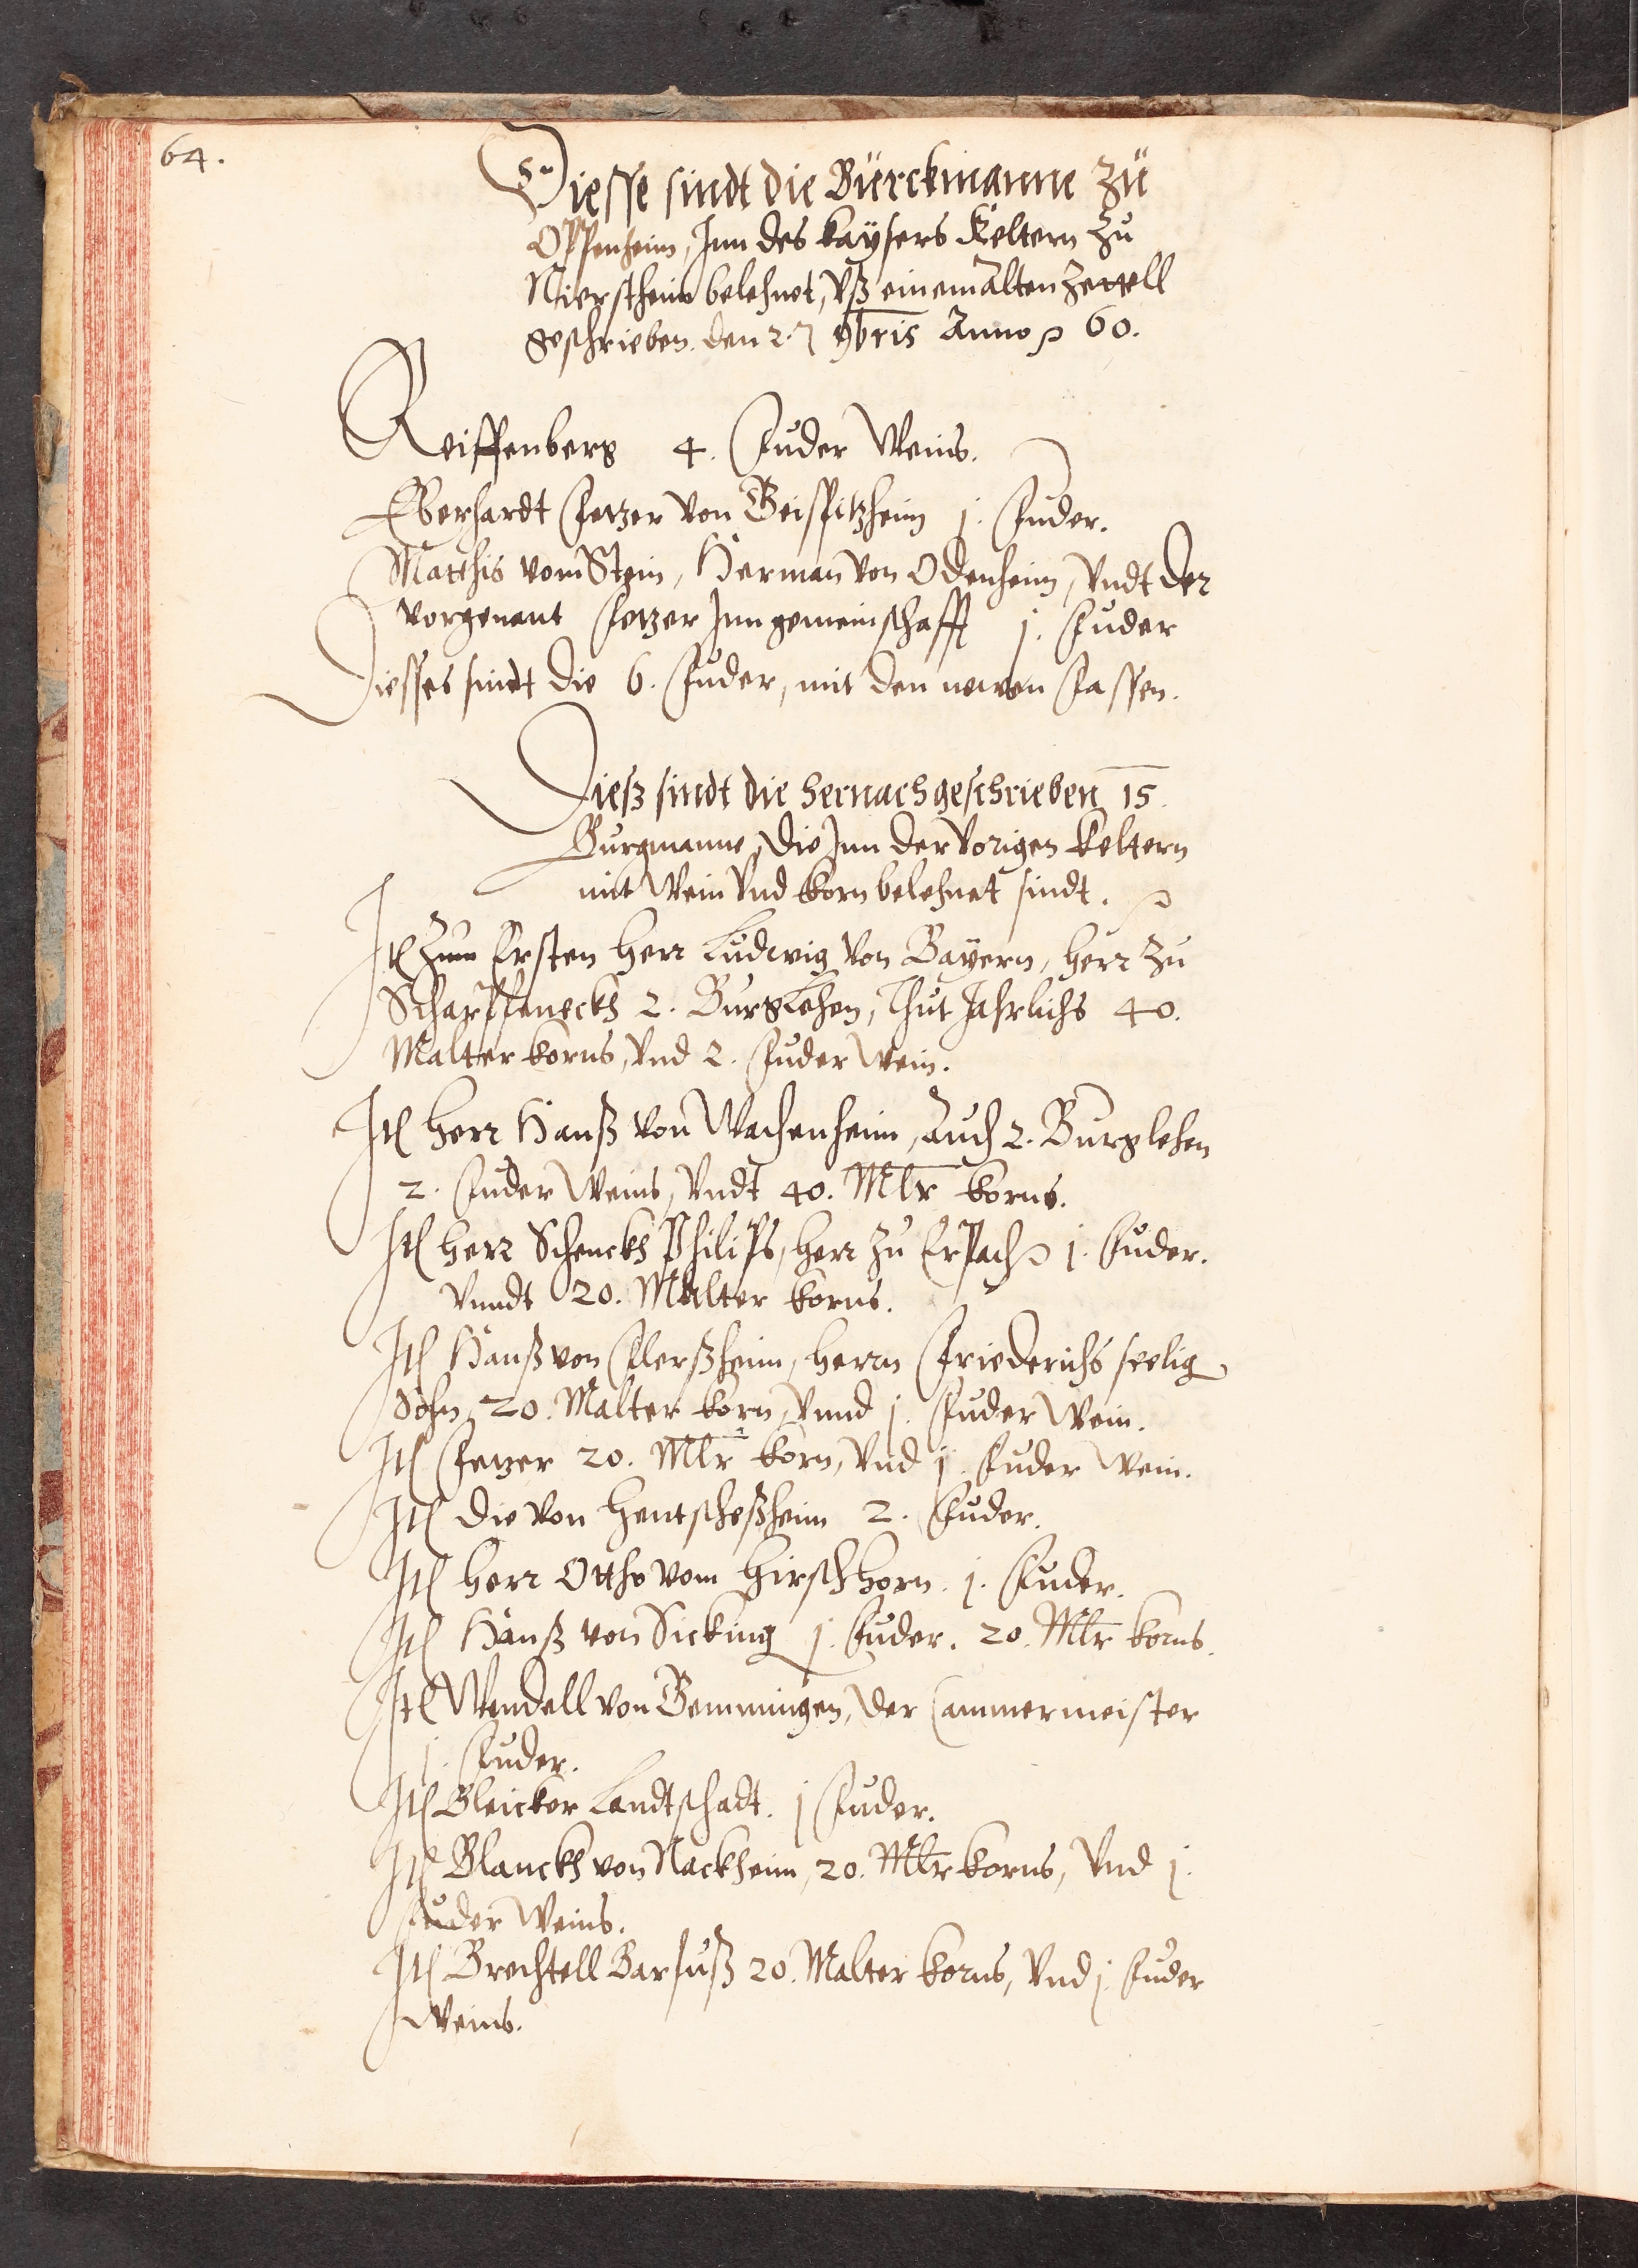 64.
Diesse sindt die Bürckmanne zu
Oppenheim, Inn des kaysers Keltern zu
Nierstheim belehnet, Vß einem Alten zettell
geschrieben. den 27 9bris Anno 60.
Reiffenberg 4. Fuder Weins.
Eberhardt Fetzer von Geispitzheim j. Fuder.
Matthis vom Stein, Herman von Odenheim, Vndt der
vorgenant Fetzer Inn gemeinschafft j. Fuder
Diesses sindt die 6. Fuder, mit den newen Fassen.
Dieß sindt die hernachgeschrieben 15
Burgmanne, die Inn der Vorigen Keltern
mit Wein Vnd Korn belehnet sindt.
Itl zum Ersten herr Ludwig von Bayern, herr zu
Scharffeneckh 2. Burglehen, thut Jahrlichs 40.
Malter korns, Vnd 2. Fuder Wein.
Itl herr Hanß von Wachenheim, Auch 2. Burglehen
2. Fuder Weins, Vndt 40. Mlr korns.
Itl herr Schenckh Philips, herr zu Erpach j. Fuder.
Vnndt 20. Malter korns.
Itl Hanß von Flerßheim, herrn Friederichs seelig
Sohn, 20. Malter korn, Vnnd j. Fuder Wein.
Itl Fetzer 20. Mlr korn, Vnd j. Fuder Wein.
Itl die von Hentscheßheim 2. Fuder.
Itl herr Ottho vom Hirschhorn. j. Fuder.
Itl Hanß von Sicking j. Fuder. 20. Mlr korns.
Itl Wendell von Gemmingen, der Cammermeister
j. Fuder.
Itl Bleicker Landtschadt. j Fuder.
Itl Blanckh von Nackheim, 20. Mlr korns, Vnd j.
Fuder Weins.
Itl Brechtell Barfuß 20. Malter korns, Vnd j. Fuder
Weins.